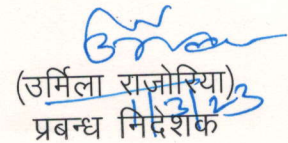 (उर्मिला राजोरिया)
1/3/23
प्रबन्ध निदेशक